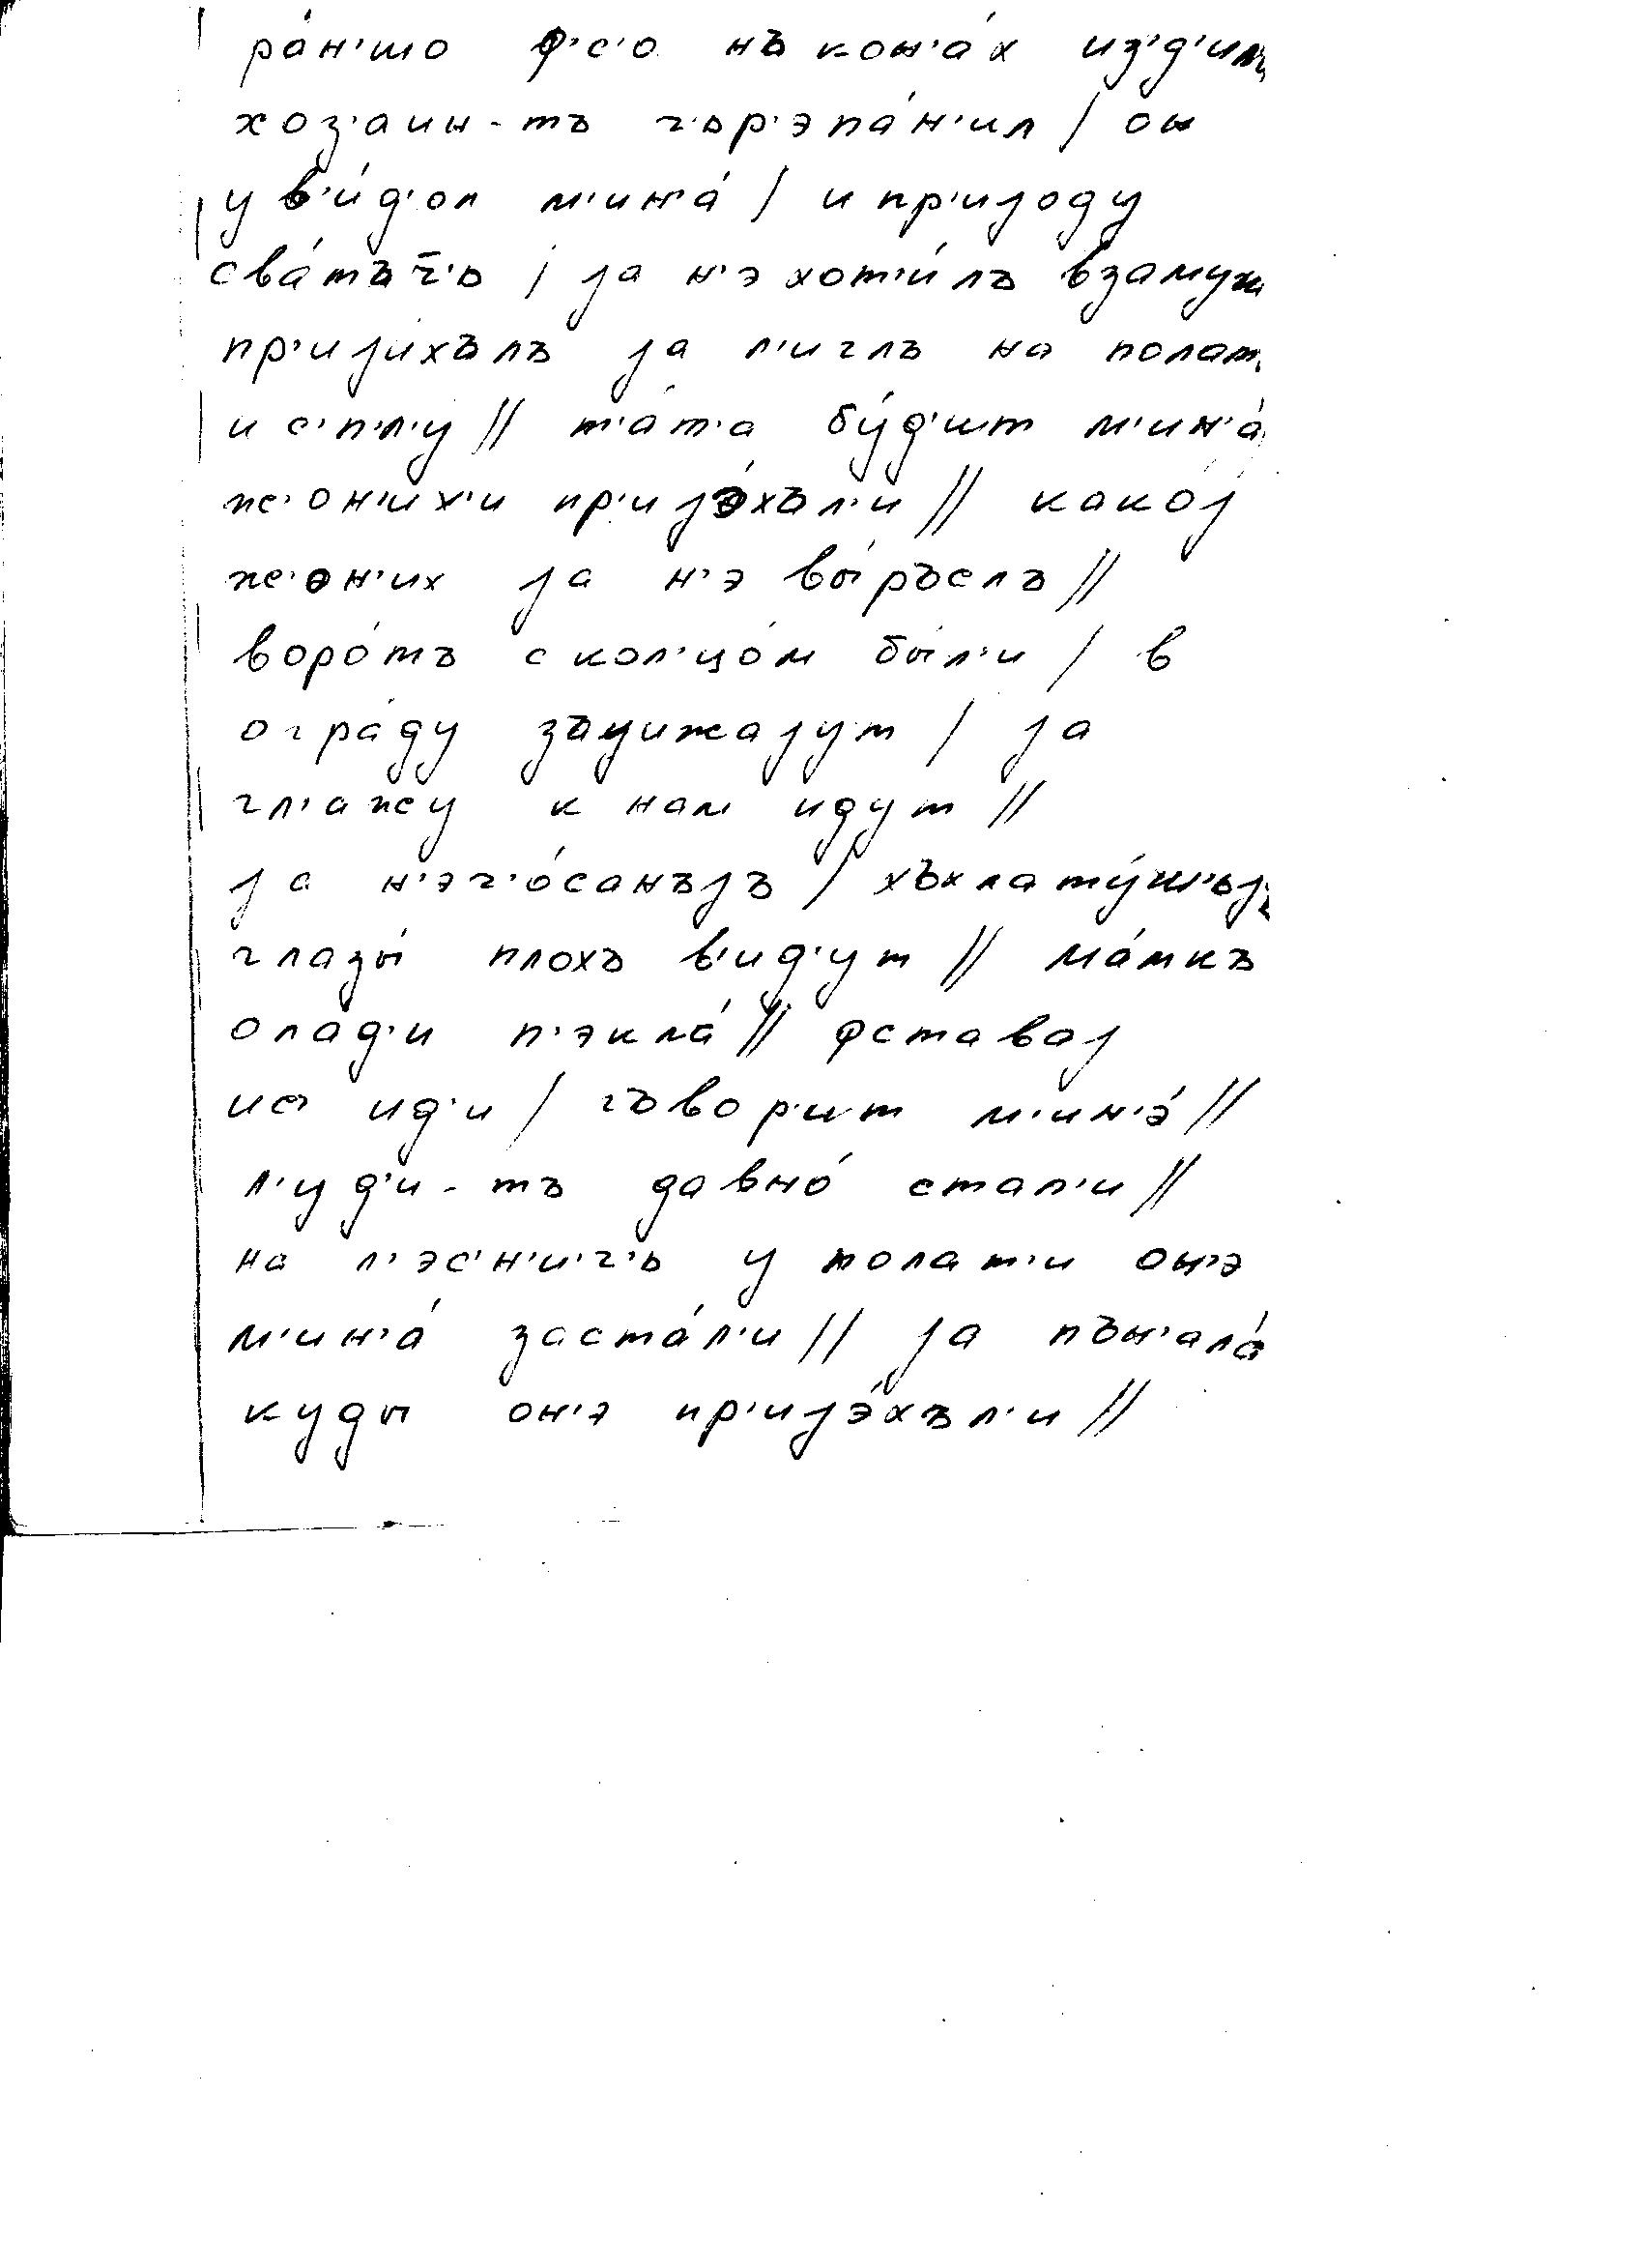 ра́н'шо ф'с'о нъ кон'а́х из'д'ил'и
хоз'аин-тъ г'ьр'эпа́н'ил / он
ув'и́д'ол м'ин'а́ / и пр'иjоду
сва́тъч̄'ь / jа н'э хот'и́лъ взамуж
пр'иjи́хълъ jа л'иглъ на полат'
и с'п'л'у // т'а́т'а бу́д'ит м'ин'а́
ж'он'их'и пр'иjэ́хъл'и // како́j
ж'он'их jа н'э вы́ръслъ //
воро́тъ с кол'цо́м бы́л'и / в
огра́ду зъижаjут / jа
гл'ажу к нам идут //
jа н'эч'о́санъjъ / хъхлату́ш'ьjь
глазы́ плохъ в'ид'ут // ма́ткъ
олад'и п'экла́ // фставаj
ид'и / гъвор'ит м'ин'э́ //
л'уд'и-тъ давно́ стал'и //
на л'эс'н'и'ч'ь у полат'и он'э
м'ин'а́ заста́л'и // jа пън'ала́
куды он'э пр'иjэ́хъл'и //